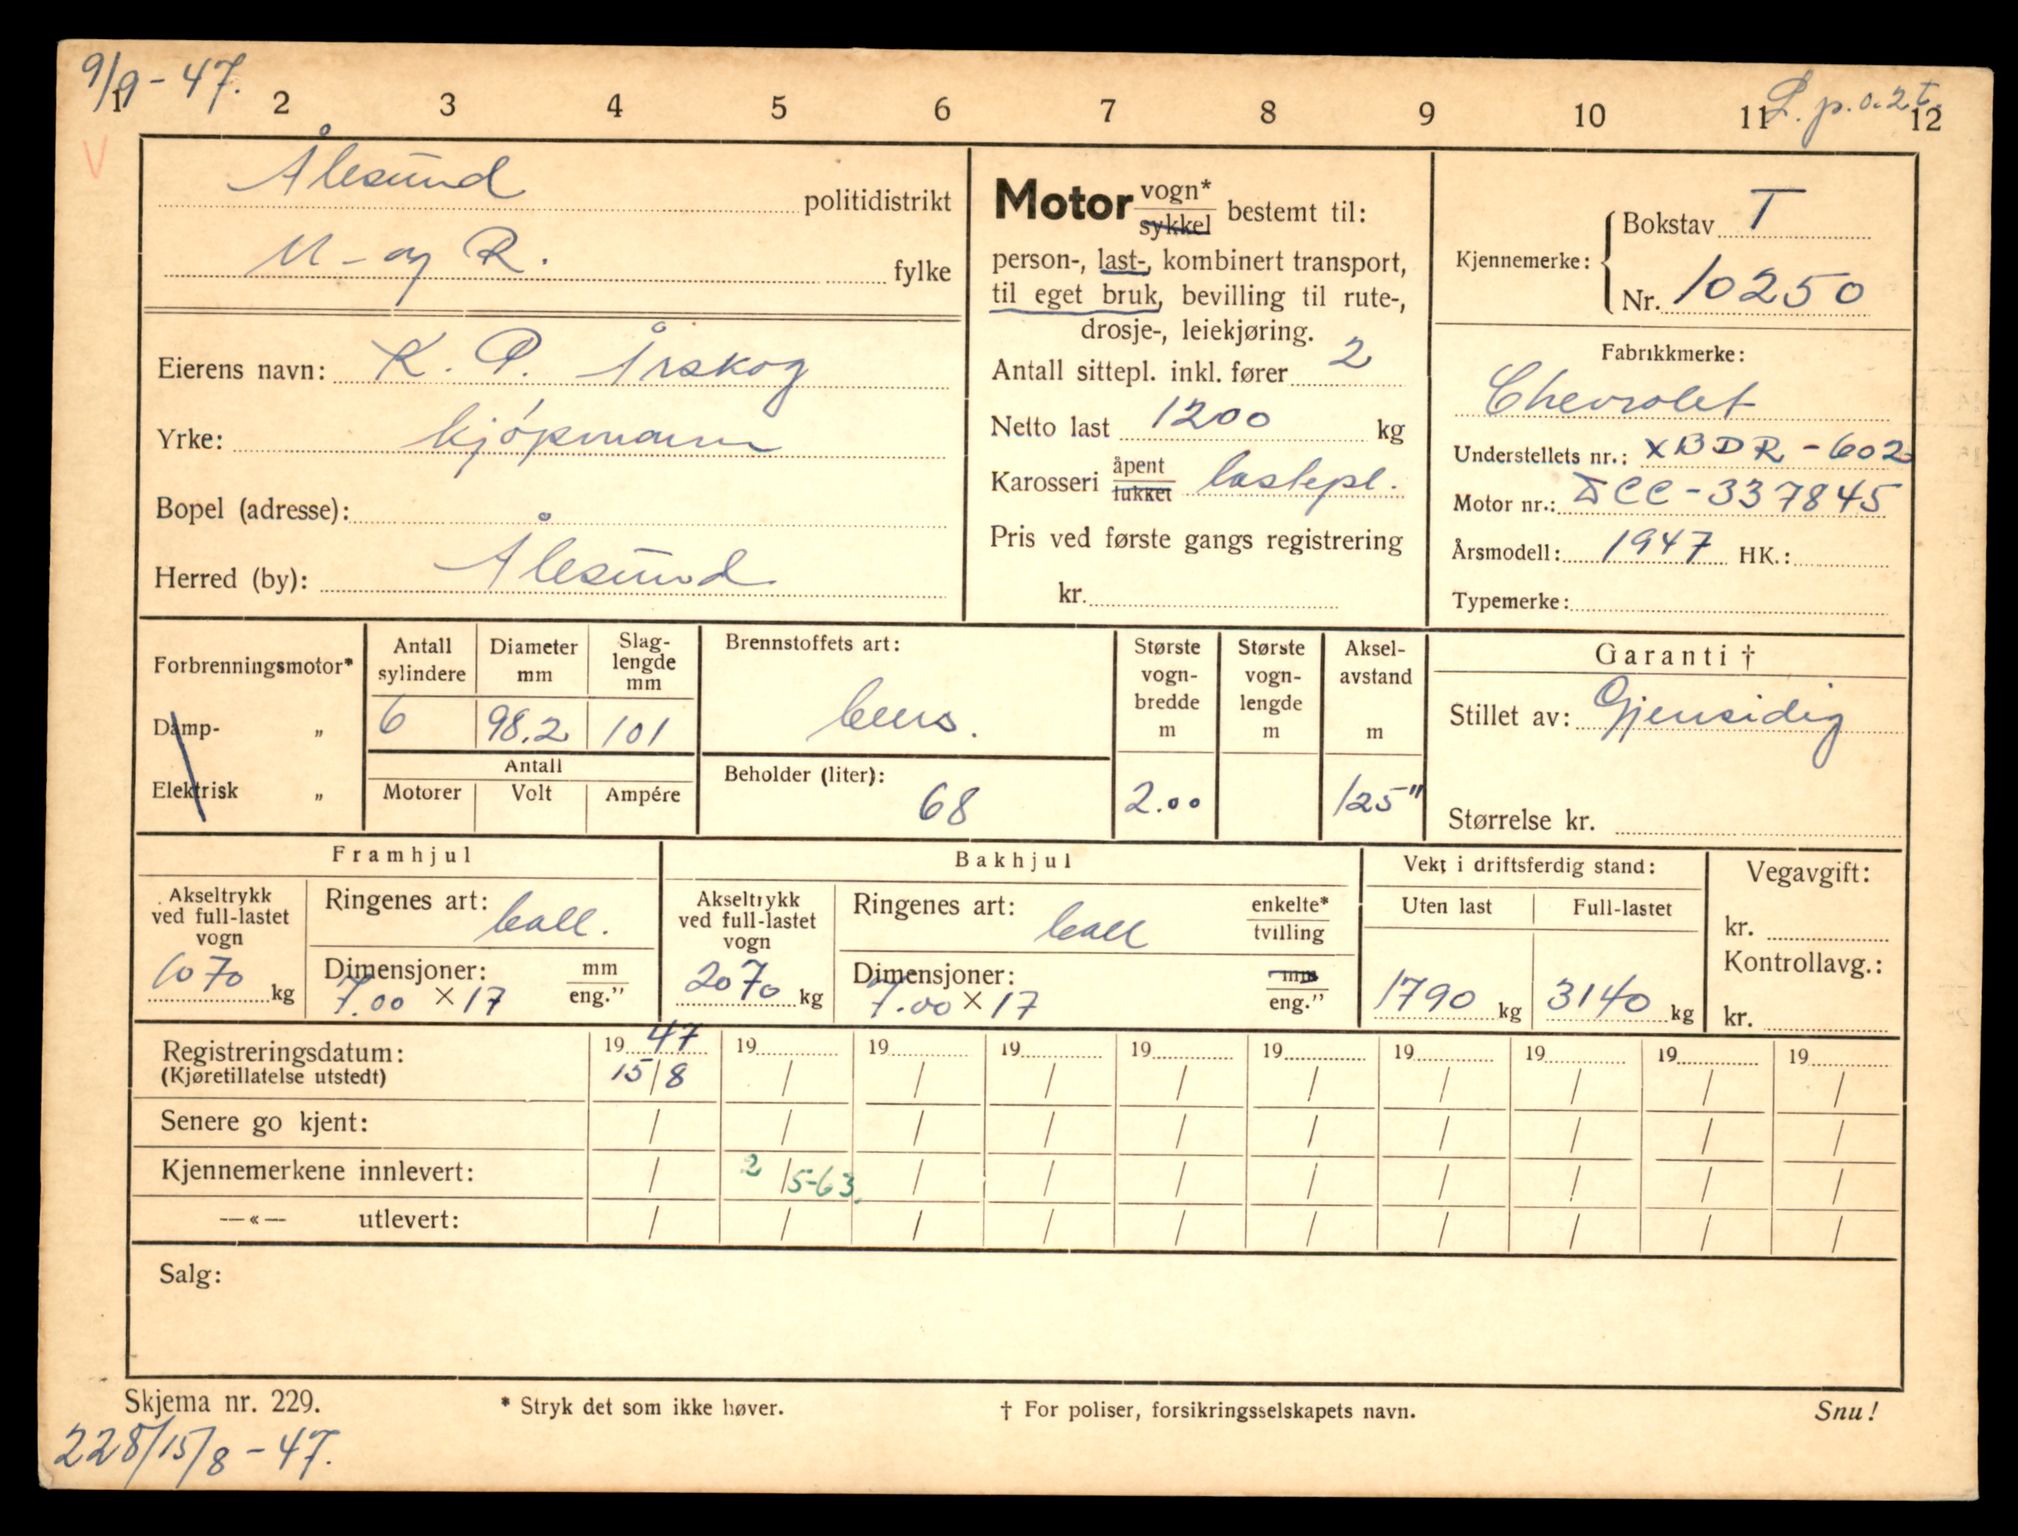 9/9-47. L. p. o. 2t.
1 2 3 4 5 6 7 8 9 10 11 12
V
Ålesund politidistrikt
M- og R. fylke
Eierens navn: K. P. Årskog
Yrke: kjøpmann
Bopel (adresse):
Herred (by): Ålesund
Motor vogn* / sykkel bestemt til:
person-, last-, kombinert transport,
til eget bruk, bevilling til rute-,
drosje-, leiekjøring.
Antall sittepl. inkl. fører 2
Netto last 1200 kg
Karosseri åpent / lukket lastepl.
Pris ved første gangs registrering
kr.
Kjennemerke: Bokstav T
Nr. 10250
Fabrikkmerke:
Chevrolet
Understellets nr.: XBDR-602
Motor nr.: CC-337845
Årsmodell: 1947 HK.:
Typemerke:
Forbrenningsmotor*
Damp- „
Elektrisk „
Antall sylindere 6
Diameter mm 98.2
Slag-lengde mm 101
Antall
Motorer Volt Ampére
Brennstoffets art:
bens.
Beholder (liter): 68
Største vogn-bredde m 2.00
Største vogn-lengde m
Aksel-avstand m 125"
Garanti †
Stillet av: Gjensidig
Størrelse kr.
Framhjul
Akseltrykk ved full-lastet vogn
1070 kg
Ringenes art: ball.
Dimensjoner: mm / eng."
7.00 × 17
Bakhjul
Akseltrykk ved full-lastet vogn
2070 kg
Ringenes art: ball enkelte* / tvilling
Dimensjoner: mm / eng."
7.00 × 17
Vekt i driftsferdig stand:
Uten last Full-lastet
1790 kg 3140 kg
Vegavgift:
kr.
Kontrollavg.:
kr.
Registreringsdatum: 19 47 19 19 19 19 19 19 19 19 19
(Kjøretillatelse utstedt) 15/8 / / / / / / / / /
Senere go kjent: / / / / / / / / / /
Kjennemerkene innlevert: / 2/5-63. / / / / / / / /
—«— utlevert: / / / / / / / / / /
Salg:
Skjema nr. 229. * Stryk det som ikke høver. † For poliser, forsikringsselskapets navn. Snu!
228/15/8-47.